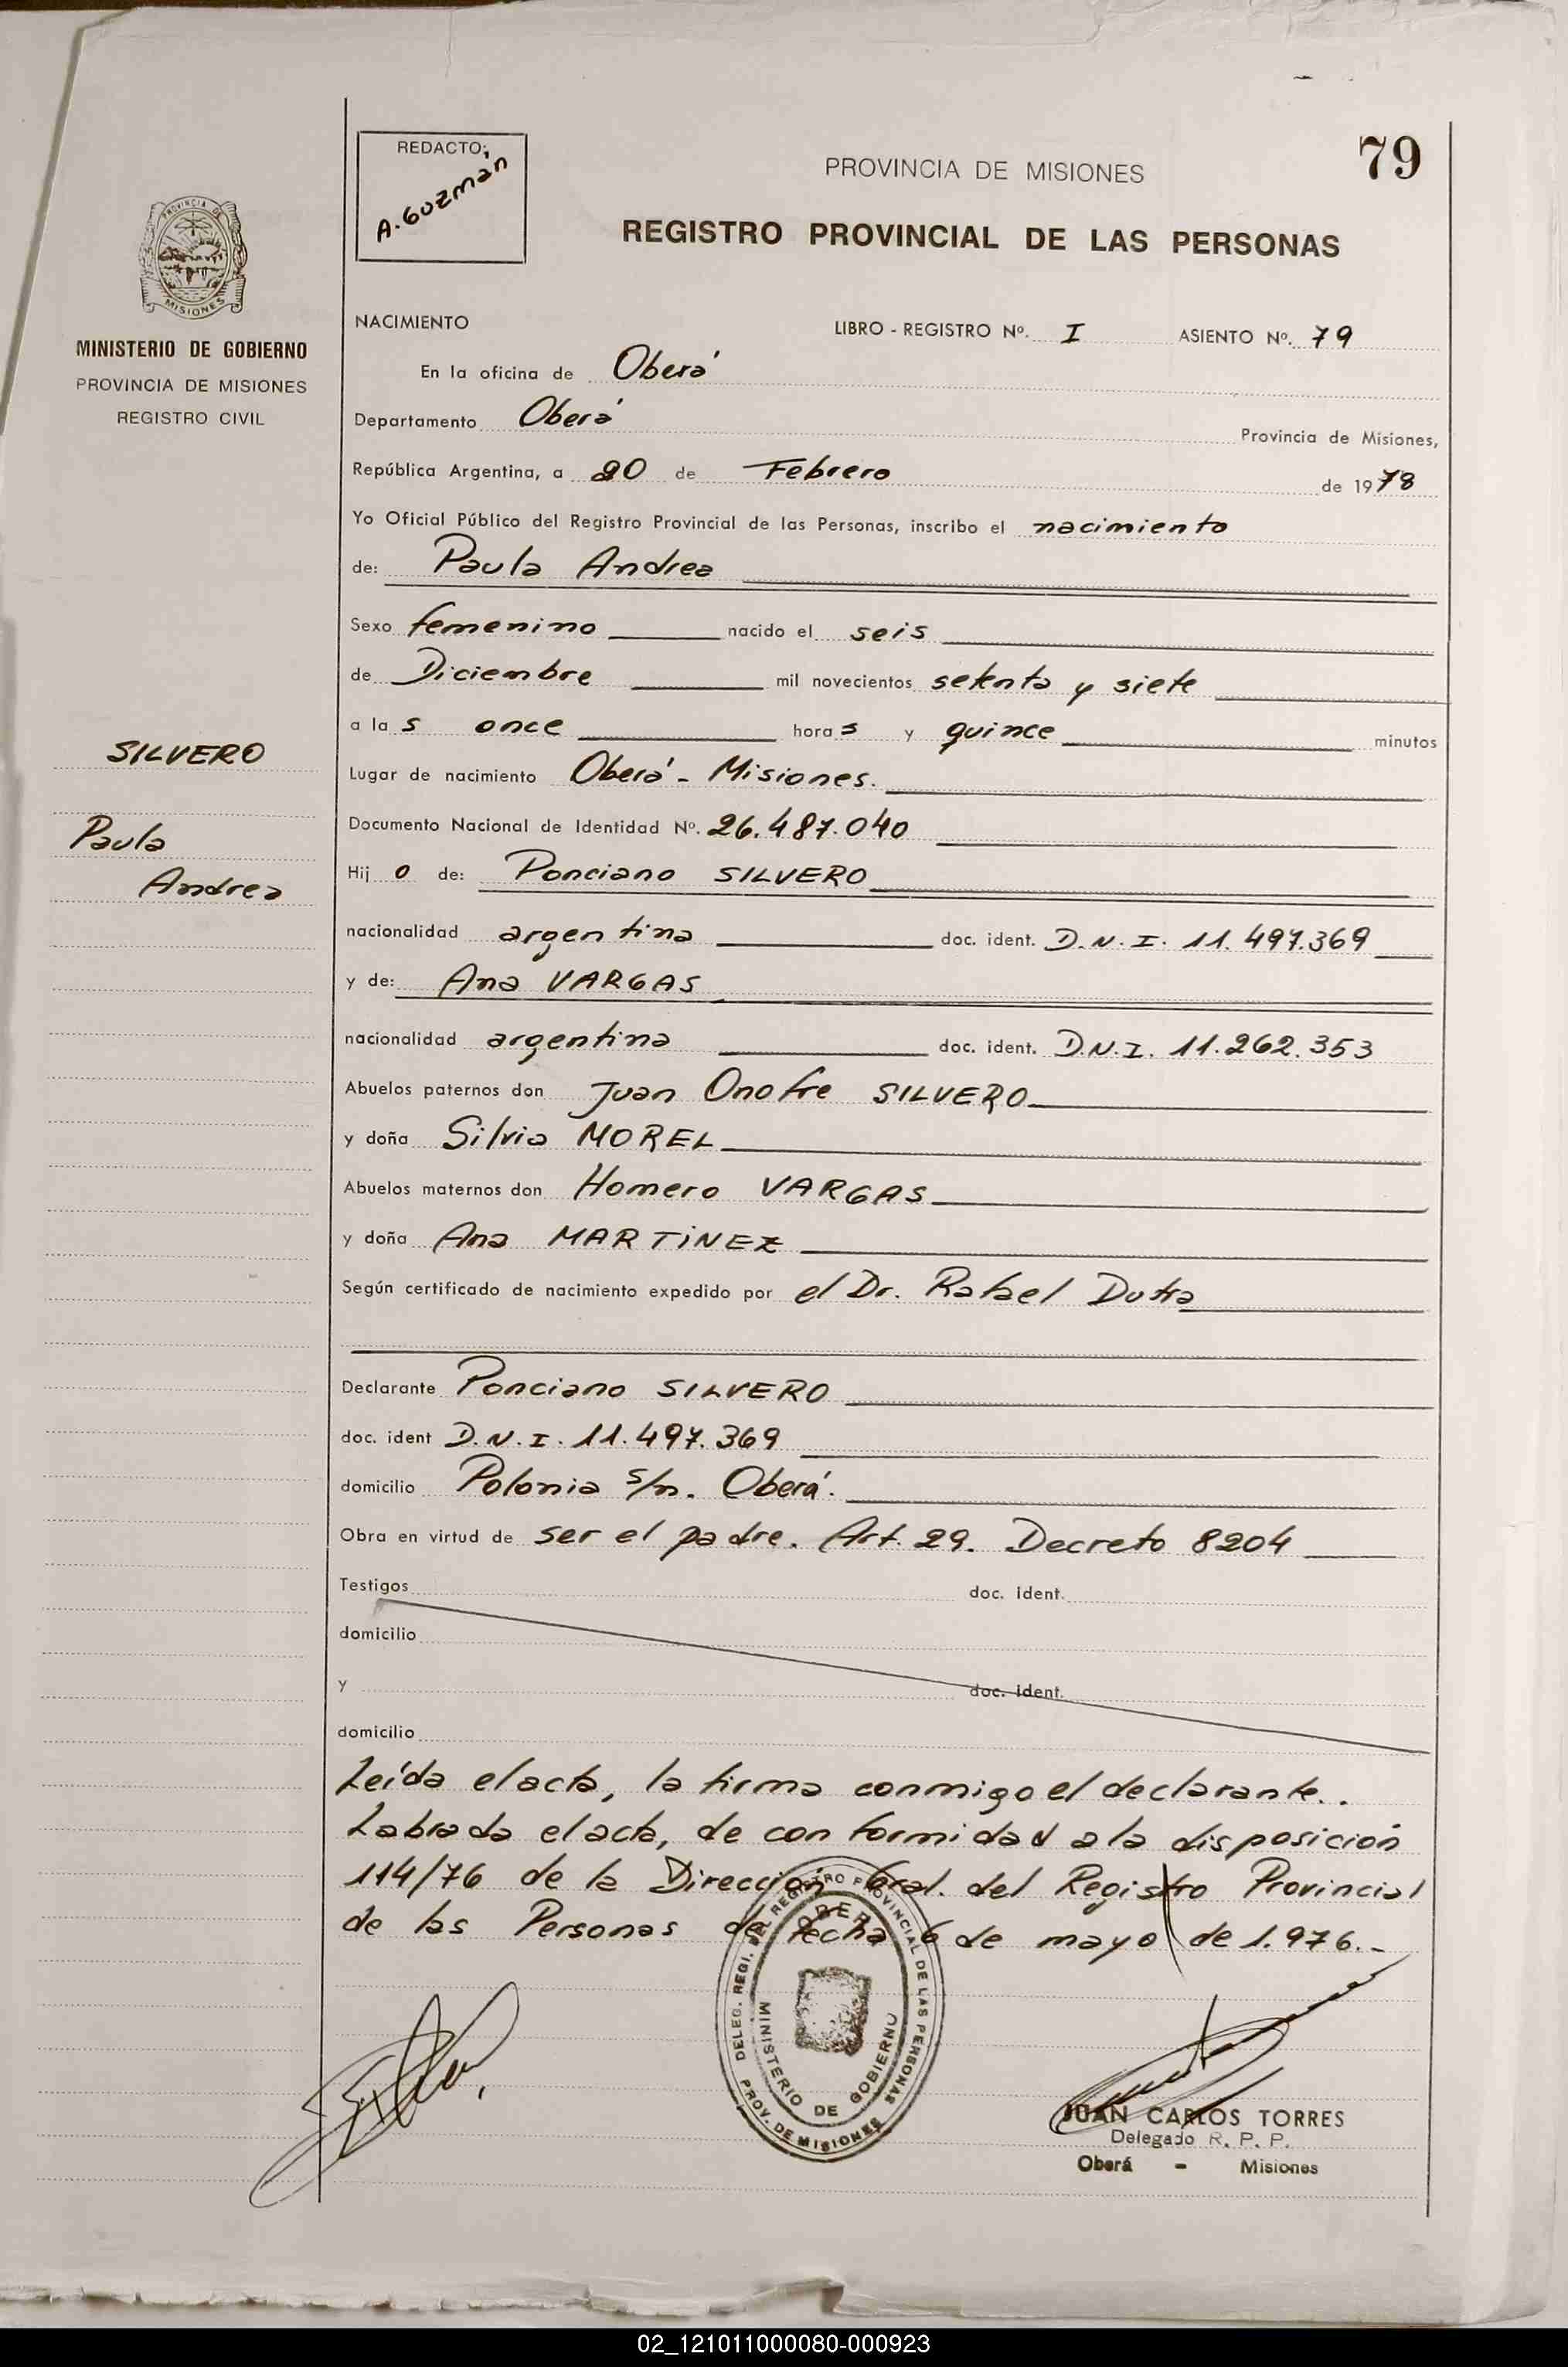 79
REDACTO:
A. GUZMán
PROVINCIA DE MISIONES
REGISTRO PROVINCIAL DE LAS PERSONAS
PROVINCIA DE
MISIONES
MINISTERIO DE GOBIERNO
PROVINCIA DE MISIONES
REGISTRO CIVIL
SILVERO
Paula
Andrea
NACIMIENTO LIBRO - REGISTRO Nº. I ASIENTO Nº. 79
En la oficina de Oberá
Departamento Oberá Provincia de Misiones,
República Argentina, a 20 de Febrero de 1978
Yo Oficial Público del Registro Provincial de las Personas, inscribo el nacimiento
de: Paula Andrea
Sexo femenino nacido el seis
de Diciembre mil novecientos setenta y siete
a las once horas y quince minutos
Lugar de nacimiento Oberá - Misiones.
Documento Nacional de Identidad Nº. 26.487.040
Hijo de: Ponciano SILVERO
nacionalidad argentina doc. ident. D.N.I. 11.497.369
y de: Ana VARGAS
nacionalidad argentina doc. ident. D.N.I. 11.262.353
Abuelos paternos don Juan Onofre SILVERO
y doña Silvia MOREL
Abuelos maternos don Homero VARGAS
y doña Ana MARTiNEZ
Según certificado de nacimiento expedido por el Dr. Rafael Dutra
Declarante Ponciano SILVERO
doc. ident D.N.I. 11.497.369
domicilio Polonia s/n. Oberá.
Obra en virtud de ser el padre. Art. 29. Decreto 8204
Testigos doc. ident.
domicilio
y doc. ident.
domicilio
Leída el acta, la firma conmigo el declarante..
Labrada el acta, de conformidad a la disposición
114/76 de la Dirección Gral. del Registro Provincial
de las Personas de fecha 6 de mayo de 1.976.-
DELEG. REGI. DEL REGISTRO PROVINCIAL DE LAS PERSONAS
OBERA
MINISTERIO DE GOBIERNO
PROV. DE MISIONES
JUAN CARLOS TORRES
Delegado R. P. P.
Oberá - Misiones
02_121011000080-000923